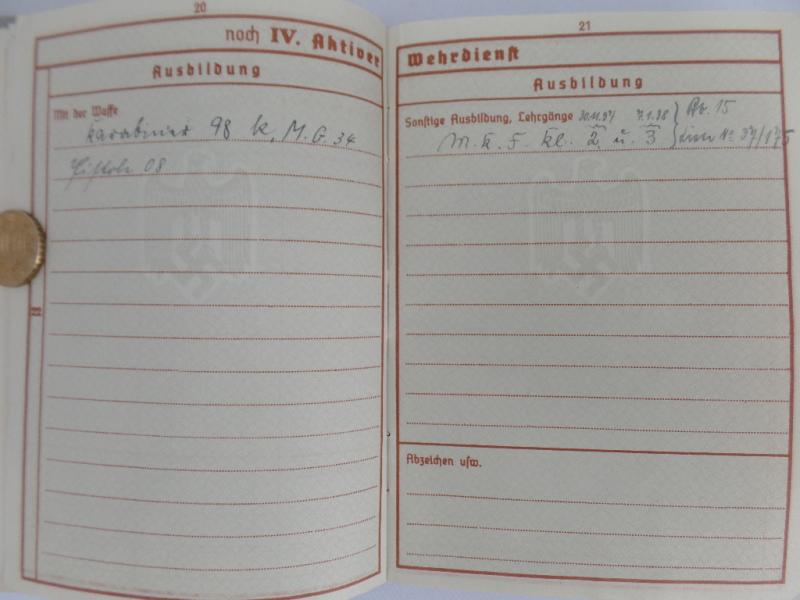 20
noch IV. Aktiver
Ausbildung
Mit der Waffe
Karabiner 98 k, M.G. 34
Pistole 08
23
21
Wehrdienst
Ausbildung
Sonstige Ausbildung, Lehrgänge 30.11.37 7.1.38
M. K. F. Kl. 2 u. 3
Nr. 37/175
Abzeichen usw.